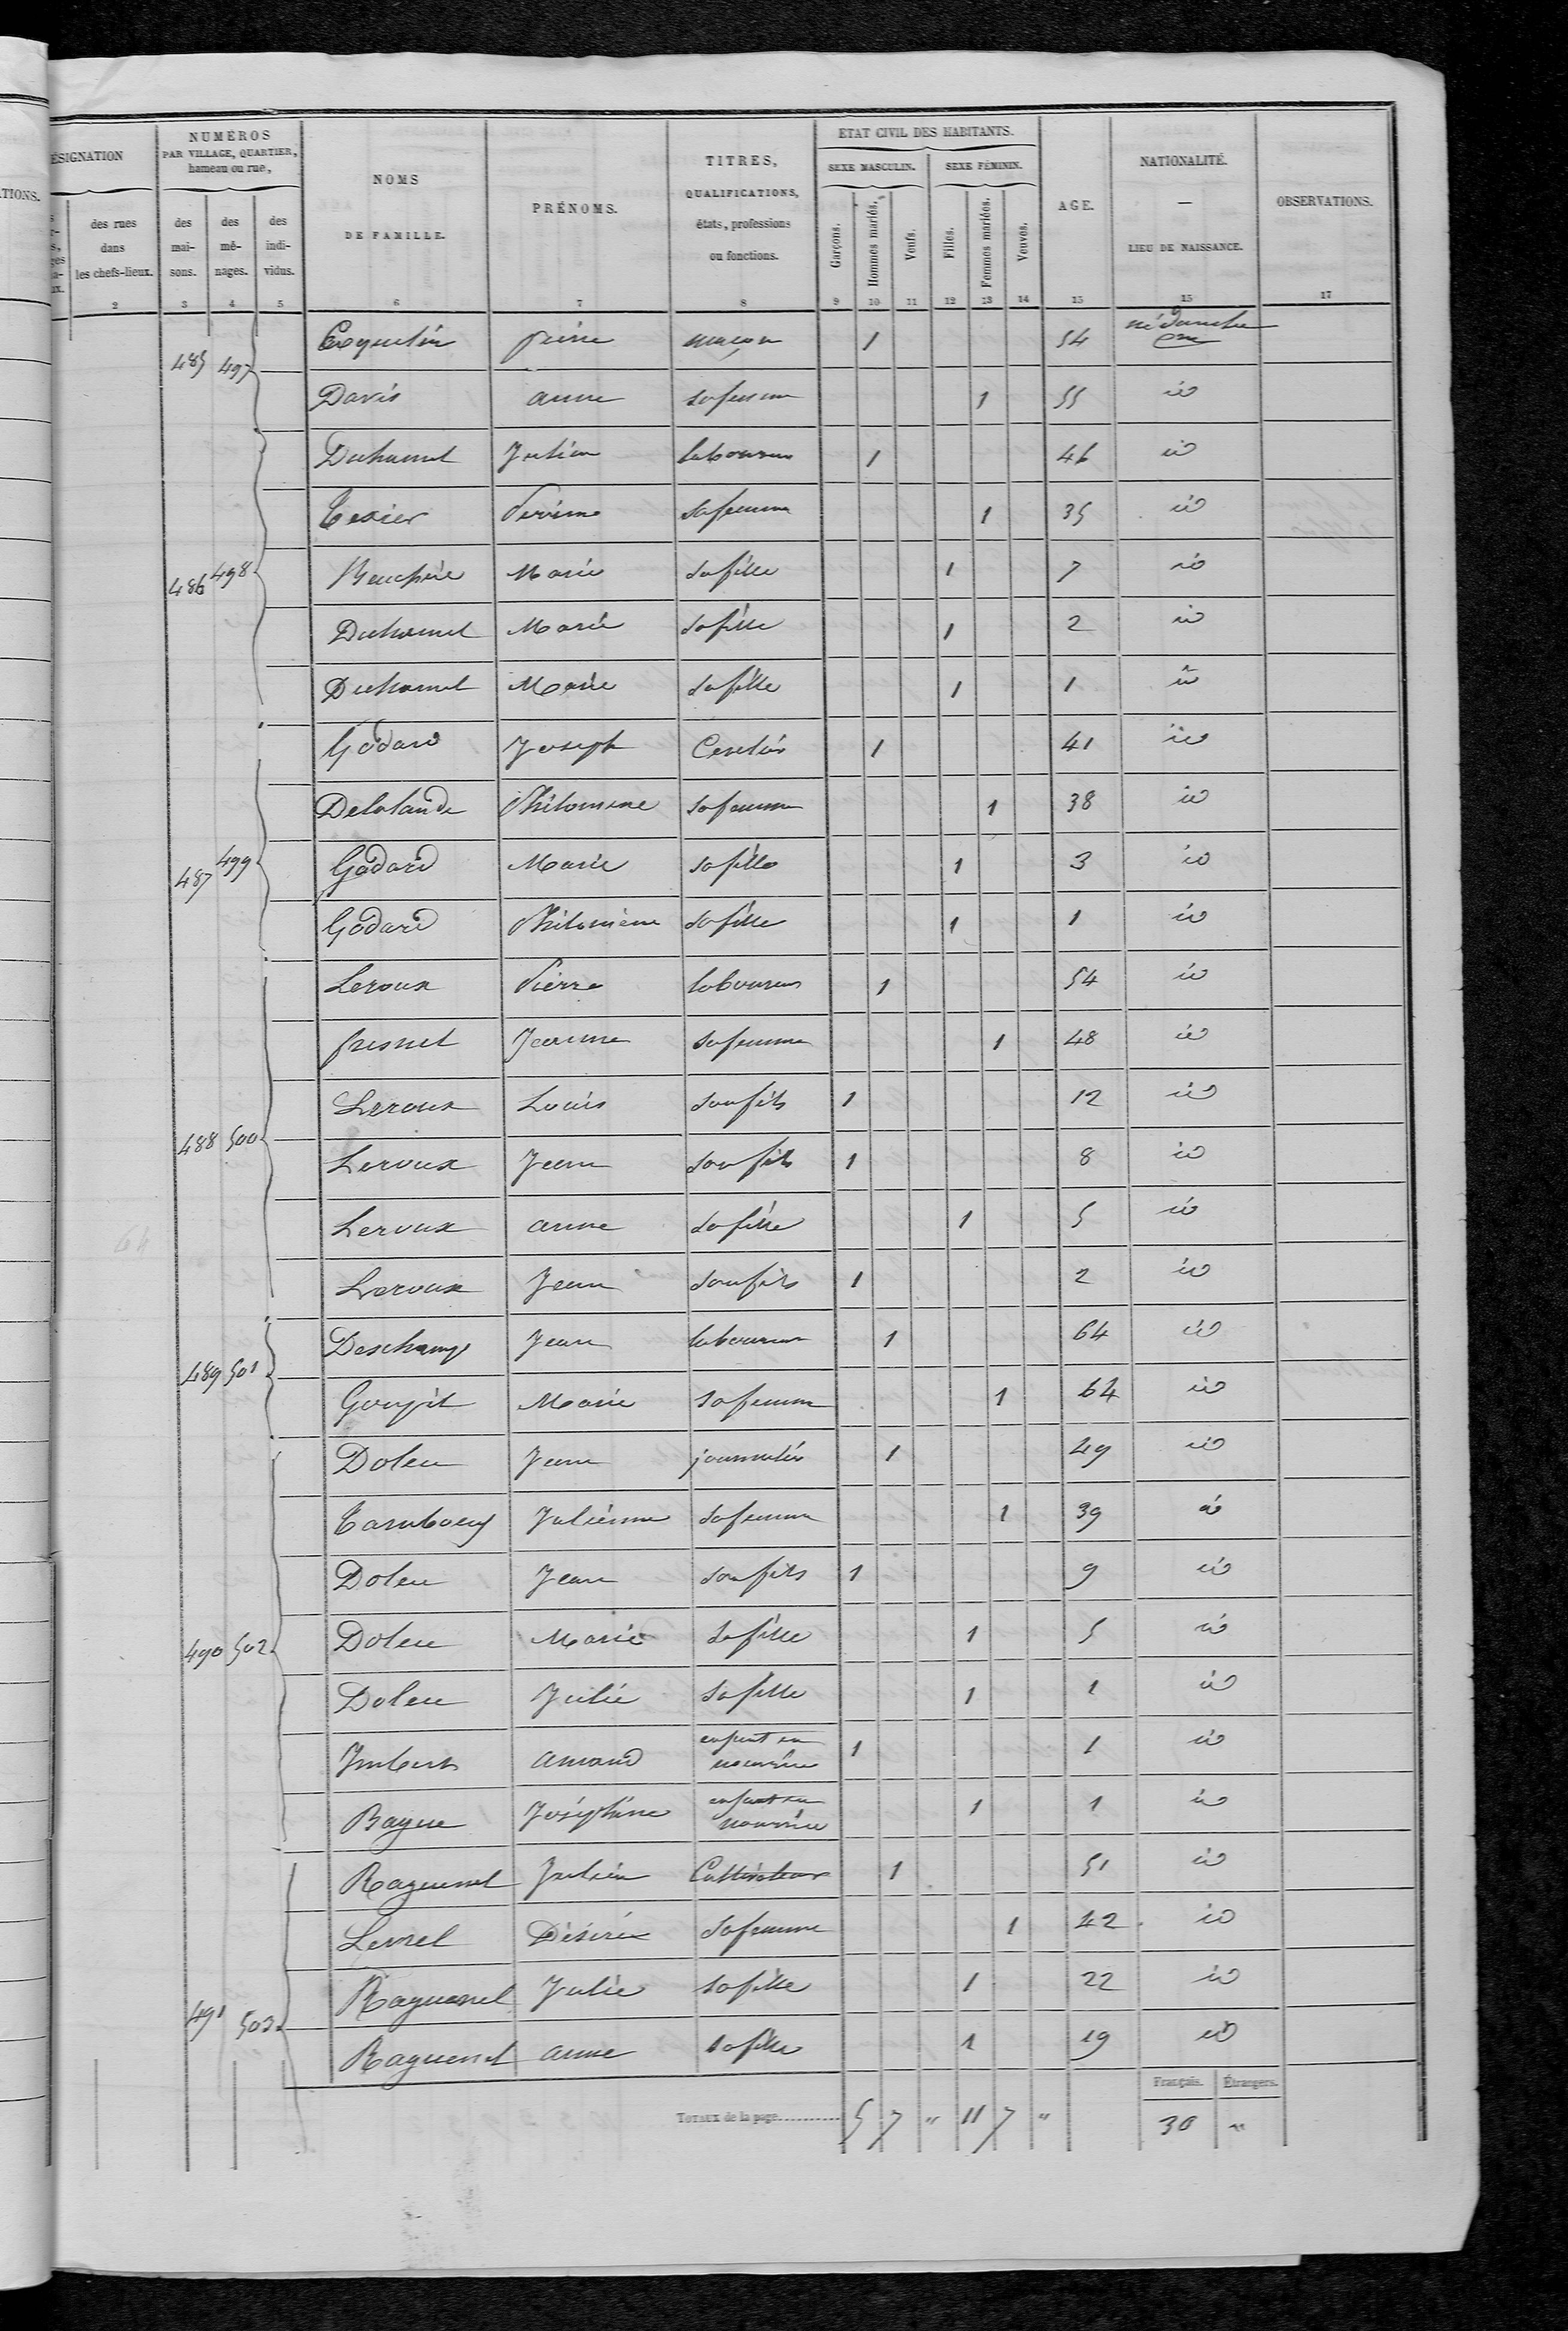 ÉSIGNATION
TIONS.
des rues dans les chefs-lieux.
NUMÉROS
PAR VILLAGE, QUARTIER,
hameau ou rue,
des maisons.
des ménages.
des individus.
NOMS
DE FAMILLE.
PRÉNOMS.
TITRES,
QUALIFICATIONS,
états, professions
ou fonctions.
ÉTAT CIVIL DES HABITANTS.
SEXE MASCULIN. SEXE FÉMININ.
Garçons. Hommes mariés. Veufs. Filles. Femmes mariées. Veuves.
AGE.
NATIONALITÉ.
—
LIEU DE NAISSANCE.
OBSERVATIONS.
2 3 4 5 6 7 8 9 10 11 12 13 14 15 15 17
485 497 Coquelin pierre maçon 1 54
Davis anne sa femme 1 55 id
Duhamel Julien laboureur 1 46 id
Texier Perrine sa femme 1 35 id
486 498 Marie sa fille 1 7 id
Duhamel Marie sa fille 1 2 id
Duhamel Marie sa fille 1 1 id
Godard Joseph 1 41 id
Delalande Philomene sa femme 1 38 id
487 499 Godard Marie sa fille 1 3 id
Godard Philomène sa fille 1 1 id
Leroux Pierre laboureur 1 54 id
fresnel Jeanne sa femme 1 48 id
Leroux Louis son fils 1 12 id
488 500 Leroux Jean son fils 1 8 id
Leroux anne sa fille 1 5 id
Leroux Jean son fils 1 2 id
Deschamp Jean laboureur 1 64 id
489 501 Goupil Marie sa femme 1 64 id
Doleu Jean journalier 1 49 id
Julienne sa femme 1 39 id
Doleu Jean son fils 1 9 id
490 502 Doleu Marie sa fille 1 5 id
Doleu Julie sa fille 1 1 id
Imbert amand enfant en nourrice 1 1 id
Bague Joséphine enfant en nourrice 1 1 id
Raguenel Julien Cultivateur 1 51 id
Lemel Désirée sa femme 1 42 id
Raguenel Julie sa fille 1 22 id
491 503 Raguenel anne sa fille 1 19 id
Français. Étrangers.
TOTAUX de la page 5 7 " 11 7 " 30 "